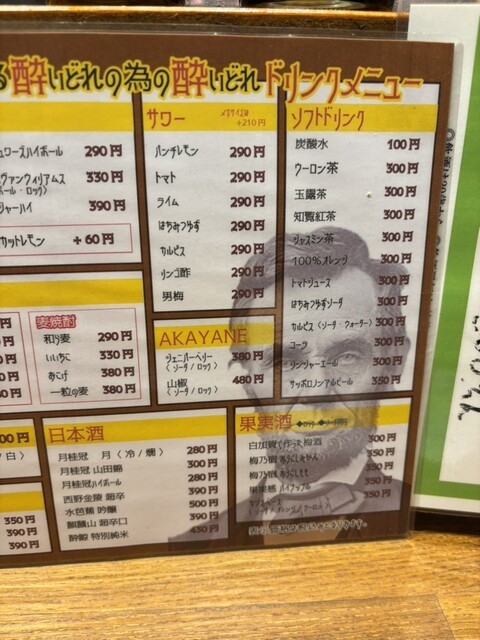 酔いどれの為の酔いどれドリンクメニュー
ハイボール 290円
330円
(ボール・ロック)
390円
カットレモン +60円
サワー メガサイズは+210円
パンチレモン 290円
トマト 290円
ライム 290円
はちみつゆず 290円
カルピス 290円
リンゴ酢 290円
男梅 290円
ソフトドリンク
炭酸水 100円
ウーロン茶 300円
玉露茶 300円
知覧紅茶 300円
ジャスミン茶 300円
100%オレンジ 300円
トマトジュース 300円
はちみつゆずソーダ 300円
カルピス(ソーダ・ウォーター) 300円
コーラ 300円
ジンジャーエール 300円
サッポロノンアルビール 350円
麦焼酎
和ら麦 290円
いいちこ 330円
380円
一粒の麦 380円
AKAYANE
ジュニパーベリー 380円
(ソーダ/ロック)
山椒 480円
(ソーダ/ロック)
日本酒
月桂冠 月(冷/燗) 280円
月桂冠 山田錦 300円
月桂冠ハイボール 280円
西野金陵 超辛 390円
水芭蕉 吟醸 500円
麒麟山 超辛口 390円
酔鯨 特別純米 430円
果実酒
白加賀で作った梅酒 300円
梅乃宿 350円
梅乃宿 350円
果実感 パイナップル 300円
350円
350円
390円
390円